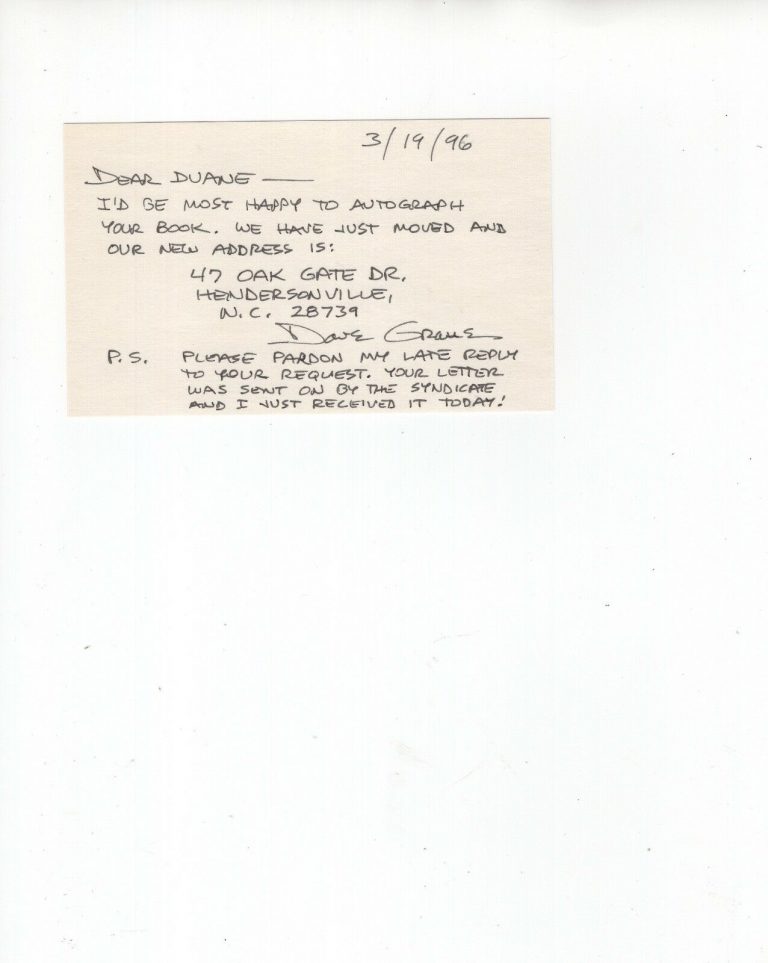 3/19/96
DEAR DUANE —
I'D BE MOST HAPPY TO AUTOGRAPH
YOUR BOOK. WE HAVE JUST MOVED AND
OUR NEW ADDRESS IS:
47 OAK GATE DR.
HENDERSONVILLE,
N.C. 28739
Dave Graue
P.S. PLEASE PARDON MY LATE REPLY
TO YOUR REQUEST. YOUR LETTER
WAS SENT ON BY THE SYNDICATE
AND I JUST RECEIVED IT TODAY!